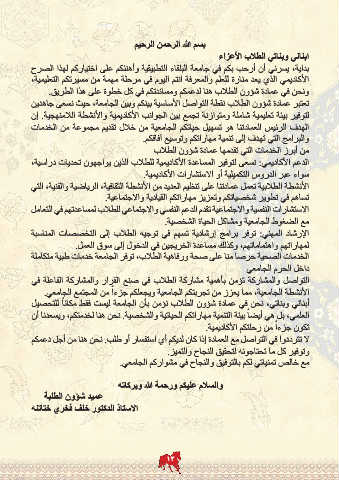 بسم الله الرحمن الرحيم
ابنائي وبناتي الطلاب الأعزاء
بداية، يسرني أن أرحب بكم في جامعة البلقاء التطبيقية وأهنئكم على اختياركم لهذا الصرح
الأكاديمي الذي يعد منارة للعلم والمعرفة أنتم اليوم في مرحلة مهمة من مسيرتكم التعليمية،
ونحن في عمادة شؤون الطلاب هنا لدعمكم ومساندتكم في كل خطوة على هذا الطريق.
تعتبر عمادة شؤون الطلاب نقطة التواصل الأساسية بينكم وبين الجامعة، حيث نسعى جاهدين
لتوفير بيئة تعليمية شاملة ومتوازنة تجمع بين الجوانب الأكاديمية والأنشطة اللامنهجية. إن
الهدف الرئيس لعمادتنا هو تسهيل حياتكم الجامعية من خلال تقديم مجموعة من الخدمات
والبرامج التي تهدف إلى تنمية مهاراتكم وتوسيع آفاقكم.
من أبرز الخدمات التي تقدمها عمادة شؤون الطلاب
الدعم الأكاديمي: نسعى لتوفير المساعدة الأكاديمية للطلاب الذين يواجهون تحديات دراسية،
سواء عبر الدروس التكميلية أو الاستشارات الأكاديمية.
الأنشطة الطلابية تعمل عمادتنا على تنظيم العديد من الأنشطة الثقافية، الرياضية والفنية، التي
تساهم في تطوير شخصياتكم وتعزيز مهاراتكم القيادية والاجتماعية.
الاستشارات النفسية والاجتماعية نقدم الدعم النفسي والاجتماعي للطلاب لمساعدتهم في التعامل
مع الضغوط الجامعية ومشاكل الحياة الشخصية.
الإرشاد المهني: توفر برامج إرشادية تسهم في توجيه الطلاب إلى التخصصات المناسبة
لمهاراتهم واهتماماتهم، وكذلك مساعدة الخريجين في الدخول إلى سوق العمل.
الخدمات الصحية حرصا منا على صحة ورفاهية الطلاب، توفر الجامعة خدمات طبية متكاملة
داخل الحرم الجامعي
التواصل والمشاركة نؤمن بأهمية مشاركة الطلاب في صنع القرار والمشاركة الفاعلة في
الأنشطة الجامعية، مما يعزز من تجربتكم الجامعية ويجعلكم جزءاً من المجتمع الجامعي.
أبنائي وبناتي، نحن في عمادة شؤون الطلاب نؤمن بأن الجامعة ليست فقط مكاناً للتحصيل
العلمي، بل هي أيضا بيئة لتنمية مهاراتكم الحياتية والشخصية. نحن هنا لخدمتكم، ويسعدنا أن
نكون جزءاً من رحلتكم الأكاديمية.
لا تترددوا في التواصل مع العمادة إذا كان لديكم أي استفسار أو طلب. نحن هنا من أجل دعمكم
وتوفير كل ما تحتاجونه لتحقيق النجاح والتميز.
مع خالص تمنياتي لكم بالتوفيق والنجاح في مشواركم الجامعي.
والسلام عليكم ورحمة الله وبركاته
عميد شؤون الطلبة
الاستاذ الدكتور خلف فخري ختاتنه